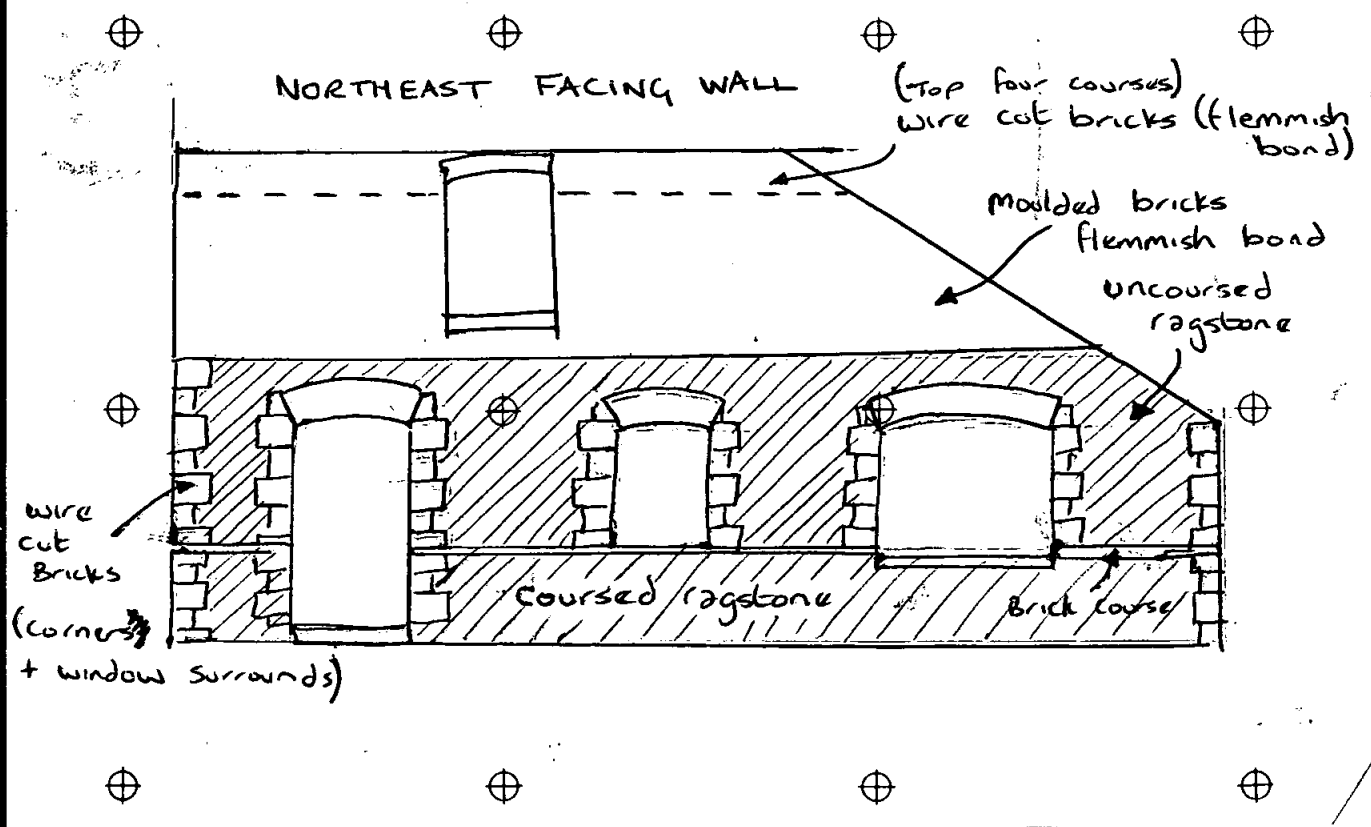 NORTHEAST FACING WALL
(Top four courses)
wire cut bricks (flemmish
bond)
Moulded bricks
flemmish bond
uncoursed
ragstone
wire
cut
Bricks
(corners)
+ window surrounds)
coursed ragstone
Brick course